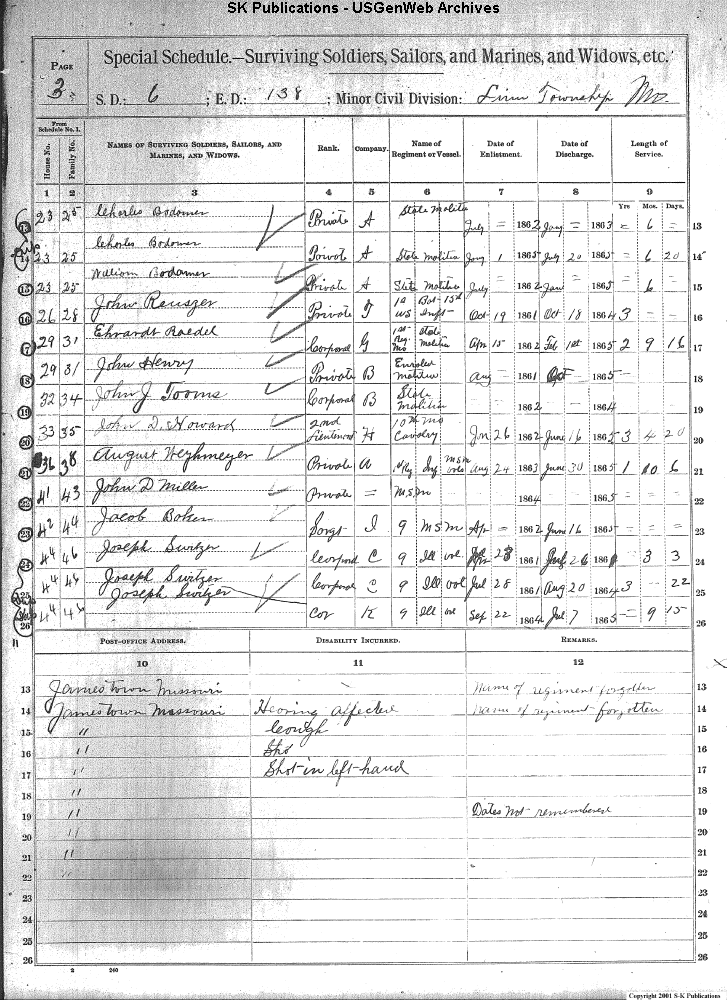 SK Publications - USGenWeb Archives
PAGE 3
Special Schedule.—Surviving Soldiers, Sailors, and Marines, and Widows, etc.
S. D.: 6 ; E. D.: 138 ; Minor Civil Division: Linn Township Mo.
From Schedule No. 1.
House No. Family No. NAMES OF SURVIVING SOLDIERS, SAILORS, AND MARINES, AND WIDOWS. Rank. Company. Name of Regiment or Vessel. Date of Enlistment. Date of Discharge. Length of Service.
1 2 3 4 5 6 7 8 9
Yrs Mos. Days.
13 23 25 Charles Bodamer Private A State Malitia July = 1862 Jany = 1863 = 6 = 13
14 23 25 Charles Bodamer Private A State Malitia Jany 1 1865 July 20 1865 = 6 20 14
15 23 25 William Bodamer Private A State Malitia July 1862 Jan 1863 6 15
16 26 28 John Reuszer Private 15th US Inft Oct 19 1861 Oct 18 1864 3 = = 16
17 29 31 Ehrardt Raedel Corporal G 1st Reg Mo State Malitia Apr 15 1862 Feb 1st 1865 2 9 16 17
18 29 31 John Henry Private B Enroled malitia Aug 1861 Oct 1865 18
19 32 34 John J Tooms Corporal B State Malitia 1862 1864 19
20 33 35 John D. Howard 2nd Lieutenant H 10th Mo Cavalry Jan 26 1862 June 16 1865 3 4 20 20
21 36 38 August Weyhmeyer Private A Inf M S M vols Aug 24 1863 June 30 1865 1 10 6 21
22 41 43 John D Miller Private = M.S.M 1864 1865 = = = 22
23 42 44 Jacob Boker Sargt I 9 M S M Apr = 1862 June 16 1865 = = = 23
24 44 46 Joseph Switzer Corporal C 9 Ill vol 23 1861 26 1861 3 3 24
25 44 46 Joseph Switzer Corporal C 9 Ill vol Jul 28 1861 Aug 20 1864 3 — 22 25
26 44 46 Joseph Switzer Cor K 9 Ill vol Sep 22 1864 Jul 7 1865 = 9 15 26
11
POST-OFFICE ADDRESS. DISABILITY INCURRED. REMARKS.
10 11 12
13 Jamestown Missouri Name of regiment forgotten 13
14 Jamestown Missouri Hearing affected Name of regiment forgotten 14
15 " Cough 15
16 " Shot 16
17 " Shot in left hand 17
18 " 18
19 " Dates not remembered 19
20 " 20
21 " 21
22 " 22
23 23
24 24
25 25
26 26
2 240
Copyright 2001 S-K Publications